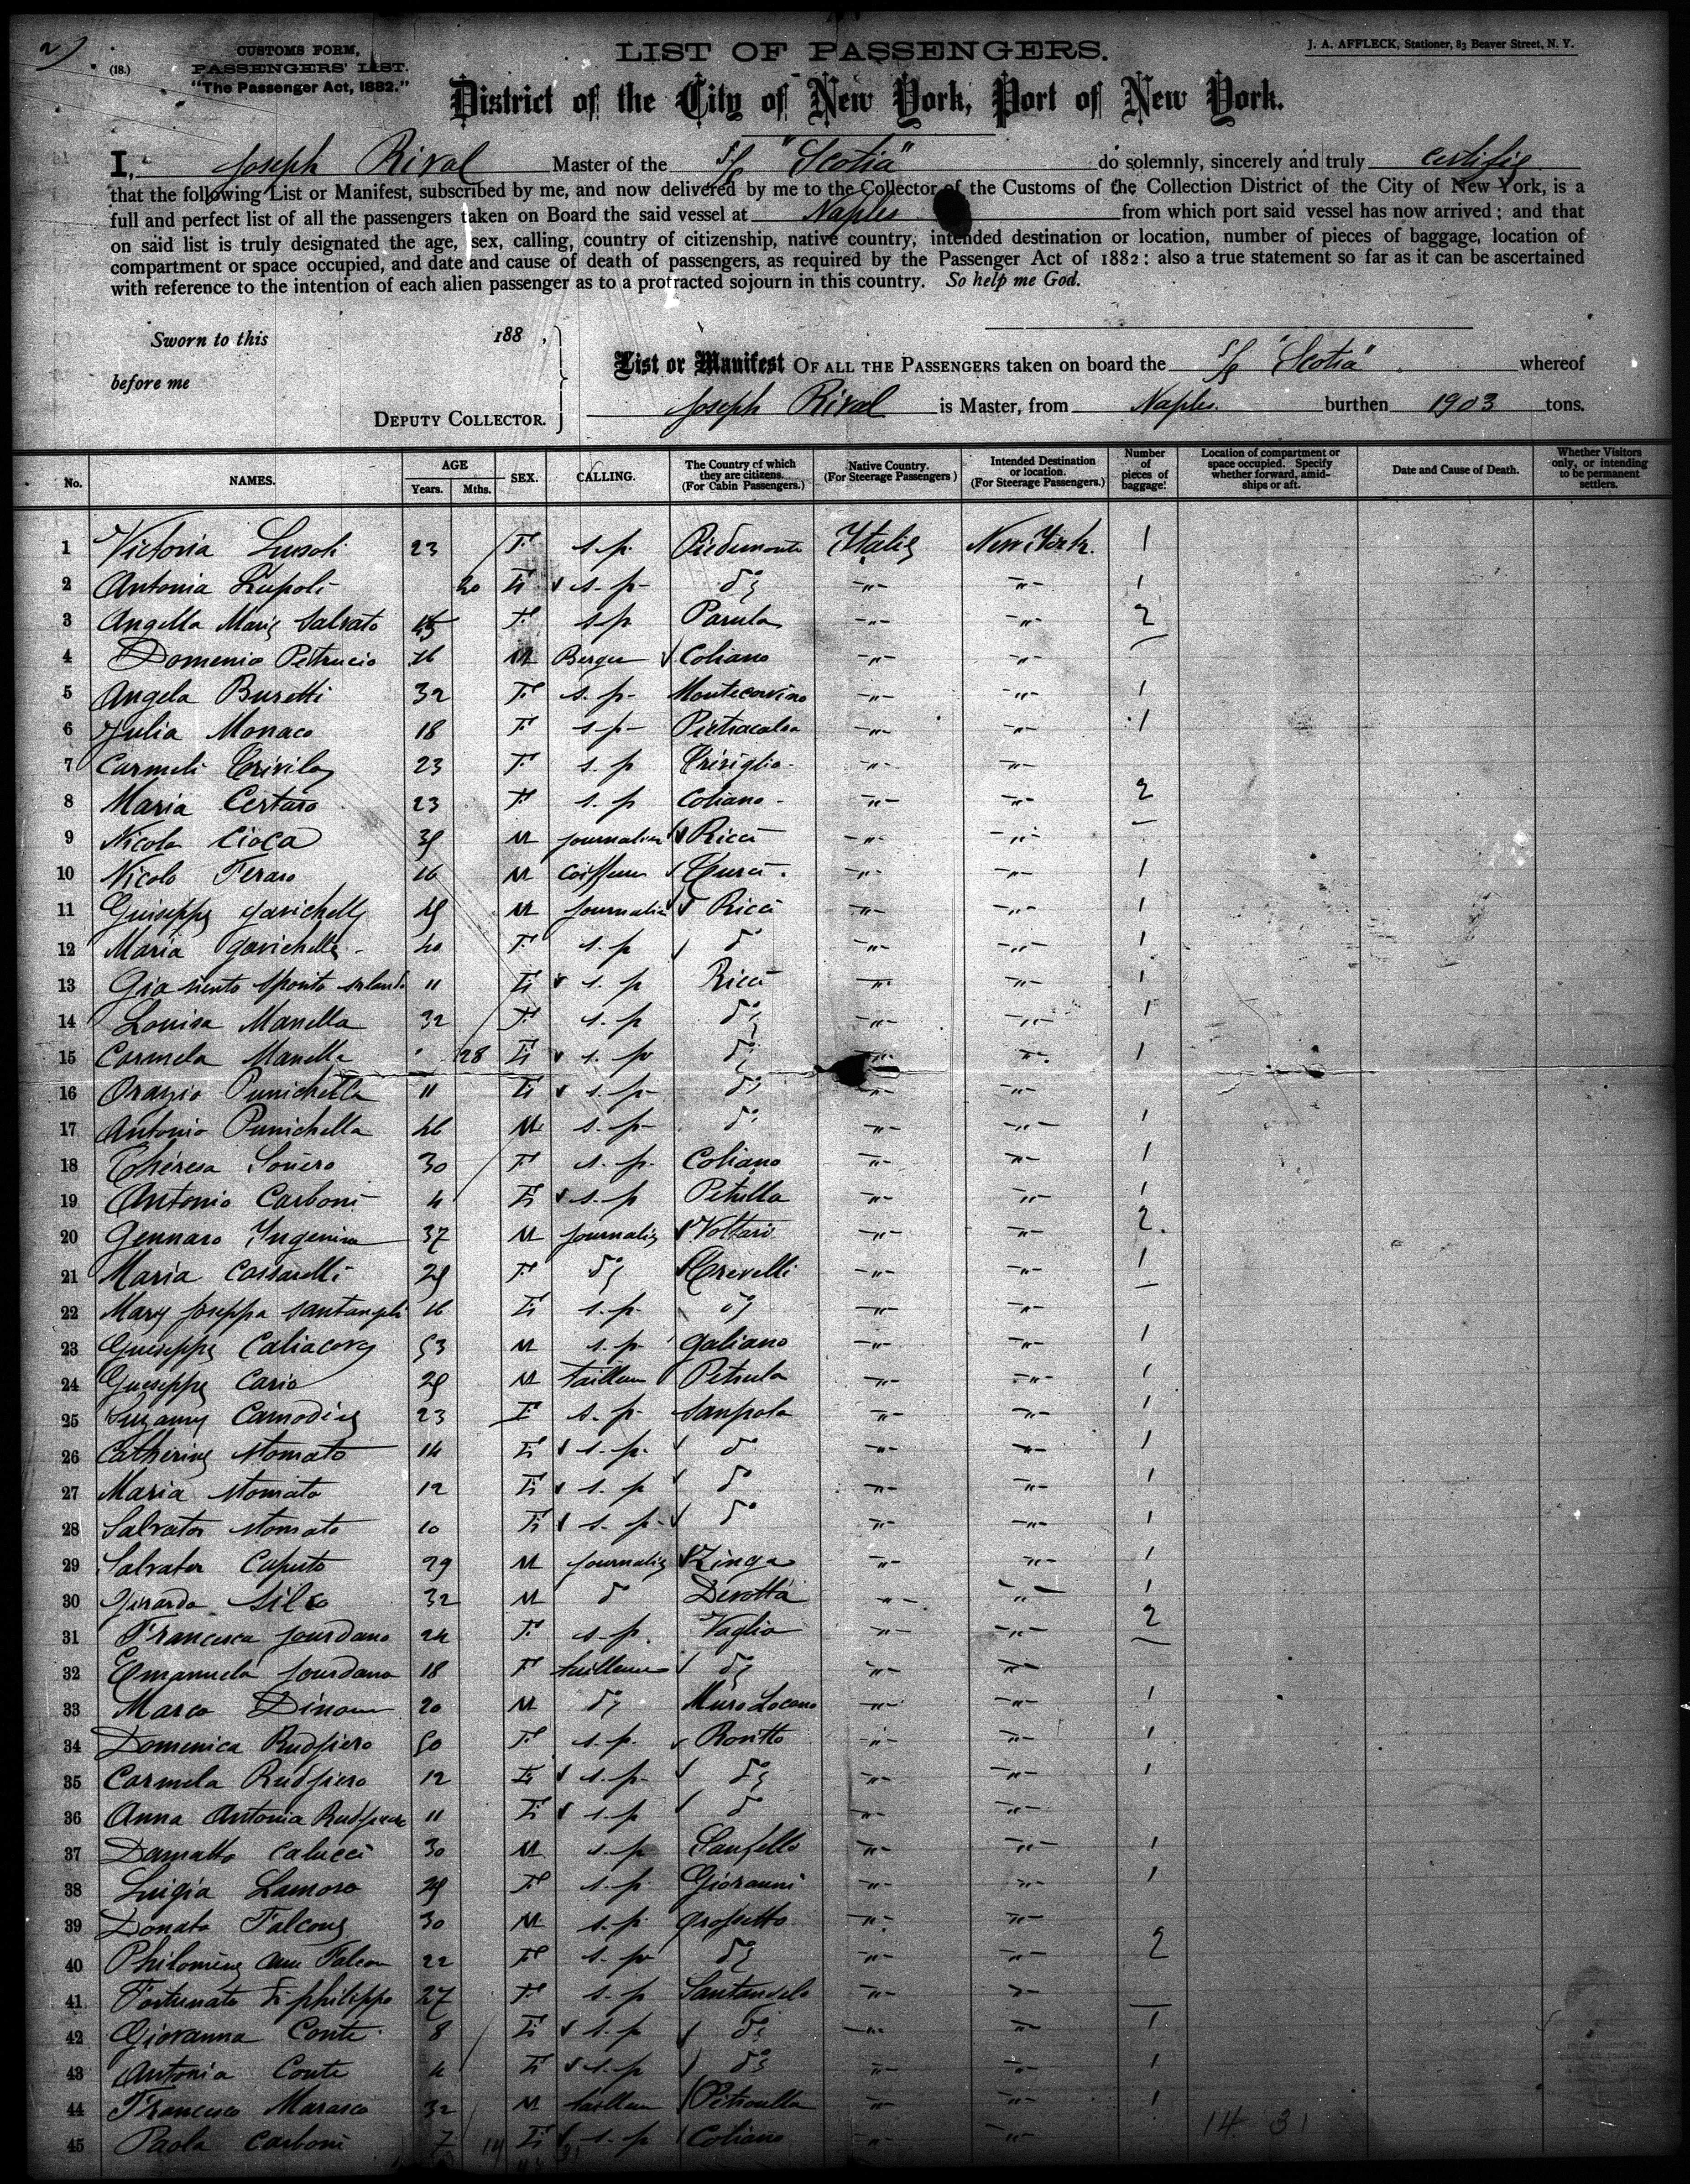 2)
(18.)
CUSTOMS FORM,
PASSENGERS' LIST.
"The Passenger Act, 1882."
LIST OF PASSENGERS.
J. A. AFFLECK, Stationer, 83 Beaver Street, N. Y.
District of the City of New York, Port of New York.
I, Joseph Rival Master of the S/S "Scotia" do solemnly, sincerely and truly certifie
that the following List or Manifest, subscribed by me, and now delivered by me to the Collector of the Customs of the Collection District of the City of New York, is a
full and perfect list of all the passengers taken on Board the said vessel at Naples from which port said vessel has now arrived; and that
on said list is truly designated the age, sex, calling, country of citizenship, native country, intended destination or location, number of pieces of baggage, location of
compartment or space occupied, and date and cause of death of passengers, as required by the Passenger Act of 1882: also a true statement so far as it can be ascertained
with reference to the intention of each alien passenger as to a protracted sojourn in this country. So help me God.
Sworn to this 188 ,
before me
DEPUTY COLLECTOR.
List or Manifest OF ALL THE PASSENGERS taken on board the S/S "Scotia" whereof
Joseph Rival is Master, from Naples. burthen 1903 tons.
No. NAMES. AGE Years. Mths. SEX. CALLING. The Country of which they are citizens. (For Cabin Passengers.) Native Country. (For Steerage Passengers) Intended Destination or location. (For Steerage Passengers.) Number of pieces of baggage. Location of compartment or space occupied. Specify whether forward, amidships or aft. Date and Cause of Death. Whether Visitors only, or intending to be permanent settlers.
1 Victoria 23 F s. p. Piedemonte Italie New York. 1
2 Antonia Lupoli 20 s. p - do -"- -"- 1
3 Angella Marie Salvato 45 F s p Parula -"- -"- 2
4 Domenio Petrucio M Berger Coliano -"- -"-
5 Angela Buretti 32 F s. p - Montecorvino -"- -"- 1
6 Julia Monaco 18 F s p - Pietracalsa -"- -"- 1
7 Carmeli 23 F s. p -"- -"-
8 Maria Certaro 23 F s. p Coliano - -"- -"- 2
9 Nicola Cioca M journalier Ricci -"- -"-
10 Nicolo Feraro M Coiffeur -"- -"- 1
11 Guiseppe M journalier Ricci -"- -"- 1
12 Maria F s. p do -"- -"- 1
13 11 s. p Ricci -"- -"- 1
14 Louisa Manella 32 F s. p do -"- -"- 1
15 Carmela Manella 28 s. p do -"- -"- 1
16 Orazio Punichella 11 s. p - do -"- -"-
17 Antonio Punichella M s. p - do -"- -"- 1
18 Théresa 30 F s. p. Coliano -"- -"- 1
19 Antonio Carboni 4 s. p Petrella -"- -"- 1
20 Gennaro 37 M journalier Voltari -"- -"- 2
21 Maria Cassarelli 29 F do Crevelli -"- -"- 1
22 Mary Joseppa Santangeli s. p. do -"- -"-
23 Guiseppe 53 M s. p. galiano -"- -"- 1
24 Guiseppe Cario 29 M tailleur Petrula -"- -"- 1
25 23 F s. p. Sanpola -"- -"- 1
26 Catherine Stomato 14 s. p. do -"- -"- 1
27 Maria Stomato 12 s. p do -"- -"- 1
28 Salvator Stomato 10 s. p - do -"- -"- 1
29 Salvator Caputo 29 M journalier Zinga -"- -"- 1
30 Girardo 32 M do Devotta -"- -"- 1
31 Francesca Jourdano 24 F s. p. Vaglio -"- -"- 2
32 Emanuela Jourdano 18 F tailleuse do -"- -"-
33 Marco 20 M do Muro Locano -"- -"- 1
34 Domenica Rudfiero 50 F s. p. Ronitto -"- -"- 1
35 Carmela Rudfiero 12 s. p. do -"- -"- 1
36 Anna Antonia Rudfiero 11 s. p do -"- -"-
37 Damatto Calucci 30 M s. p Sanfello -"- -"- 1
38 Luigia Lamoro 29 F s. p. Giovanni -"- -"- 1
39 Donato Falcone 30 M s. p. Grossetto -"- -"-
40 Philomene Falcon 22 F s. p. do -"- -"- 2
41 Fortunato di philippo 27 F s. p Santangelo -"- -"-
42 Giovanna Conte 8 s. p do -"- -"- 1
43 Antonia Conte 4 s. p do -"- -"- 1
44 Francesco Marasco 32 M tailleur Petroulla -"- -"- 1
45 Paola Carboni 7 s. p Coliano -"- -"-
14 31